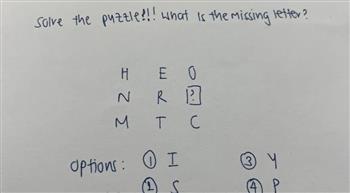 Solve the puzzle!!! What is the missing letter?
H E O
N R ?
M T C
Options: ① I ③ Y
② S ④ P